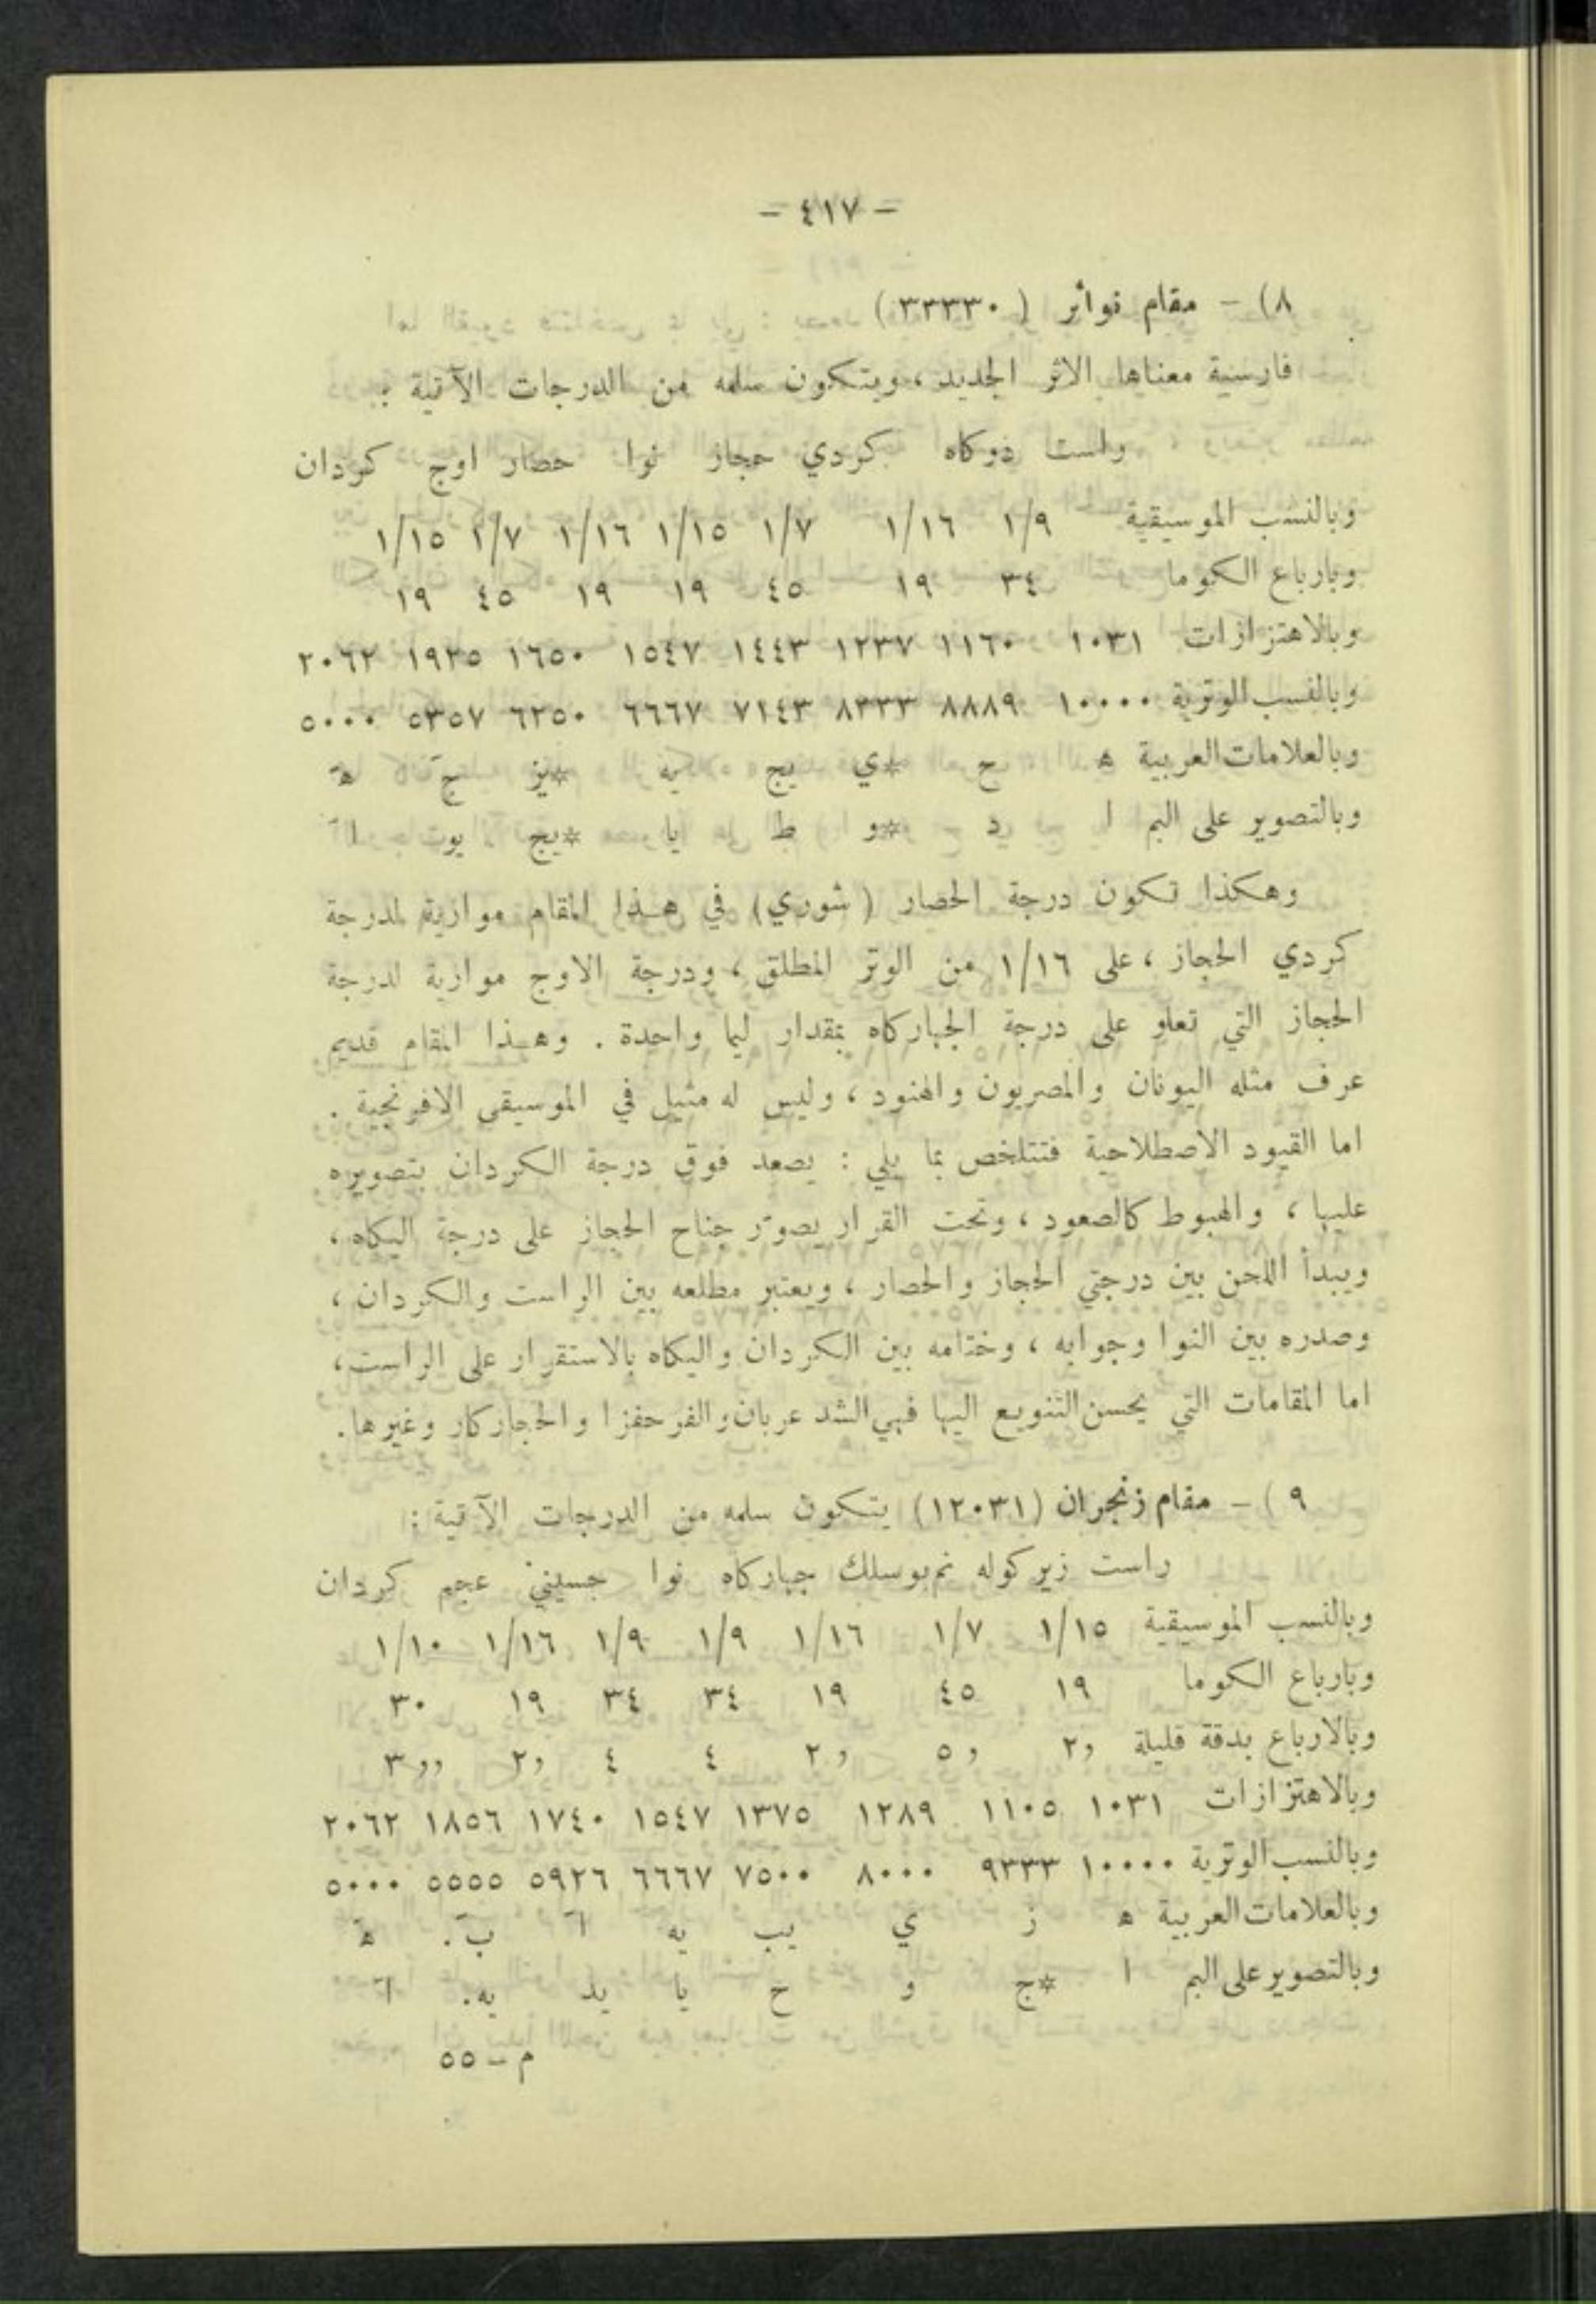 - ٤١٧ -
٨) - مقام نوأثر ( ٣٣٣٣٠)
فارسية معناها الاثر الجديد ، ويتكون سلمه من الدرجات الآتية :
راست دوكاه كردي حجاز نوا حصار اوج كردان
وبالنسب الموسيقية ١/٩ ١/١٦ ١/٧ ١/١٥ ١/١٦ ١/٧ ١/١٥
وبارباع الكوما ٣٤ ١٩ ٤٥ ١٩ ١٩ ٤٥ ١٩
وبالاهتزازات ١٠٣١ ١١٦٠ ١٢٣٧ ١٤٤٣ ١٥٤٧ ١٦٥٠ ١٩٢٥ ٢٠٦٢
وبالنسب الوترية ١٠٠٠٠ ٨٨٨٩ ٨٣٣٣ ٧١٤٣ ٦٦٦٧ ٦٢٥٠ ٥٣٥٧ ٥٠٠٠
وبالعلامات العربية ه ح *ي يج يه *يز جَ هَ
وبالتصوير على البم ا د *و ط يا *يج يوت اَ
وهكذا تكون درجة الحصار ( شوري) في هذا المقام موازية لدرجة
كردي الحجاز ، على ١/١٦ من الوتر المطلق ، ودرجة الاوج موازية لدرجة
الحجاز التي تعلو على درجة الجهاركاه بمقدار ليما واحدة . وهذا المقام قديم
عرف مثله اليونان والمصريون والهنود ، وليس له مثيل في الموسيقى الافرنجية .
اما القيود الاصطلاحية فتتلخص بما يلي : يصعد فوق درجة الكردان بتصويره
عليها ، والهبوط كالصعود ، وتحت القرار يصوّر جناح الحجاز على درجة اليكاه ،
ويبدأ اللحن بين درجتي الحجاز والحصار ، ويعتبر مطلعه بين الراست والكردان ،
وصدره بين النوا وجوابه ، وختامه بين الكردان واليكاه بالاستقرار على الراست ،
اما المقامات التي يحسن التنويع اليها فهي الشد عربان والفرحفزا والحجازكار وغيرها.
٩ ) - مقام زنجران (١٢٠٣١) يتكون سلمه من الدرجات الآتية :
راست زيركوله نم بوسلك جهاركاه نوا حسيني عجم كردان
وبالنسب الموسيقية ١/١٥ ١/٧ ١/١٦ ١/٩ ١/٩ ١/١٦ ١/١٠
وبارباع الكوما ١٩ ٤٥ ١٩ ٣٤ ٣٤ ١٩ ٣٠
وبالارباع بدقة قليلة و٢ و٥ و٢ ٤ ٤ و٢ وو٣
وبالاهتزازات ١٠٣١ ١١٠٥ ١٢٨٩ ١٣٧٥ ١٥٤٧ ١٧٤٠ ١٨٥٦ ٢٠٦٢
وبالنسب الوترية ١٠٠٠٠ ٩٣٣٣ ٨٠٠٠ ٧٥٠٠ ٦٦٦٧ ٥٩٢٦ ٥٥٥٥ ٥٠٠٠
وبالعلامات العربية ه ز ي يب يه اَ بَ. هَ
وبالتصوير على البم ا *ج و ح يا يد يه. اَ
م - ٥٥